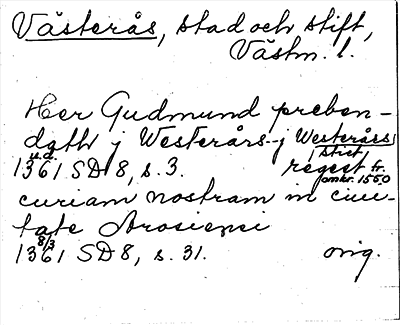 Västerås, stad och stift,
Västm. l.
Her Gudmund preben-
dath j Westerårs j Westeråss
stict
u.d.
1361 SD 8, s. 3. regest fr.
omkr. 1550
curiam nostram in ciui-
tate Arosiensi
8/3
1361 SD 8, s. 31. orig.